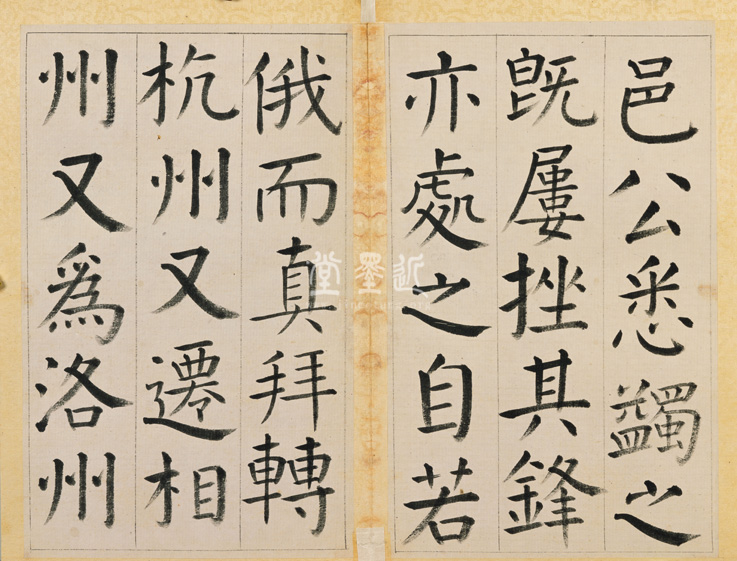 邑公悉蠲之
既屢挫其鋒
亦處之自若
俄而真拜轉
杭州又遷相
州又爲洛州
近墨堂